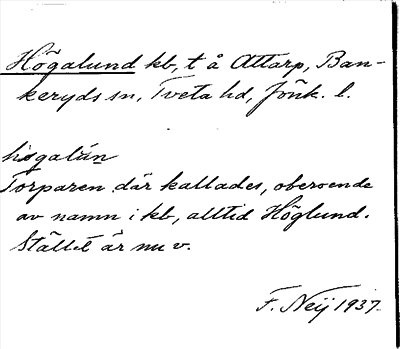 Högalund kb, t å Attarp, Ban-
keryds sn, Tveta hd, Jönk. l.
högalun
Torparen där kallades, oberoende
av namn i kb, alltid Höglund.
Stället är nu v.
F. Neij 1937.